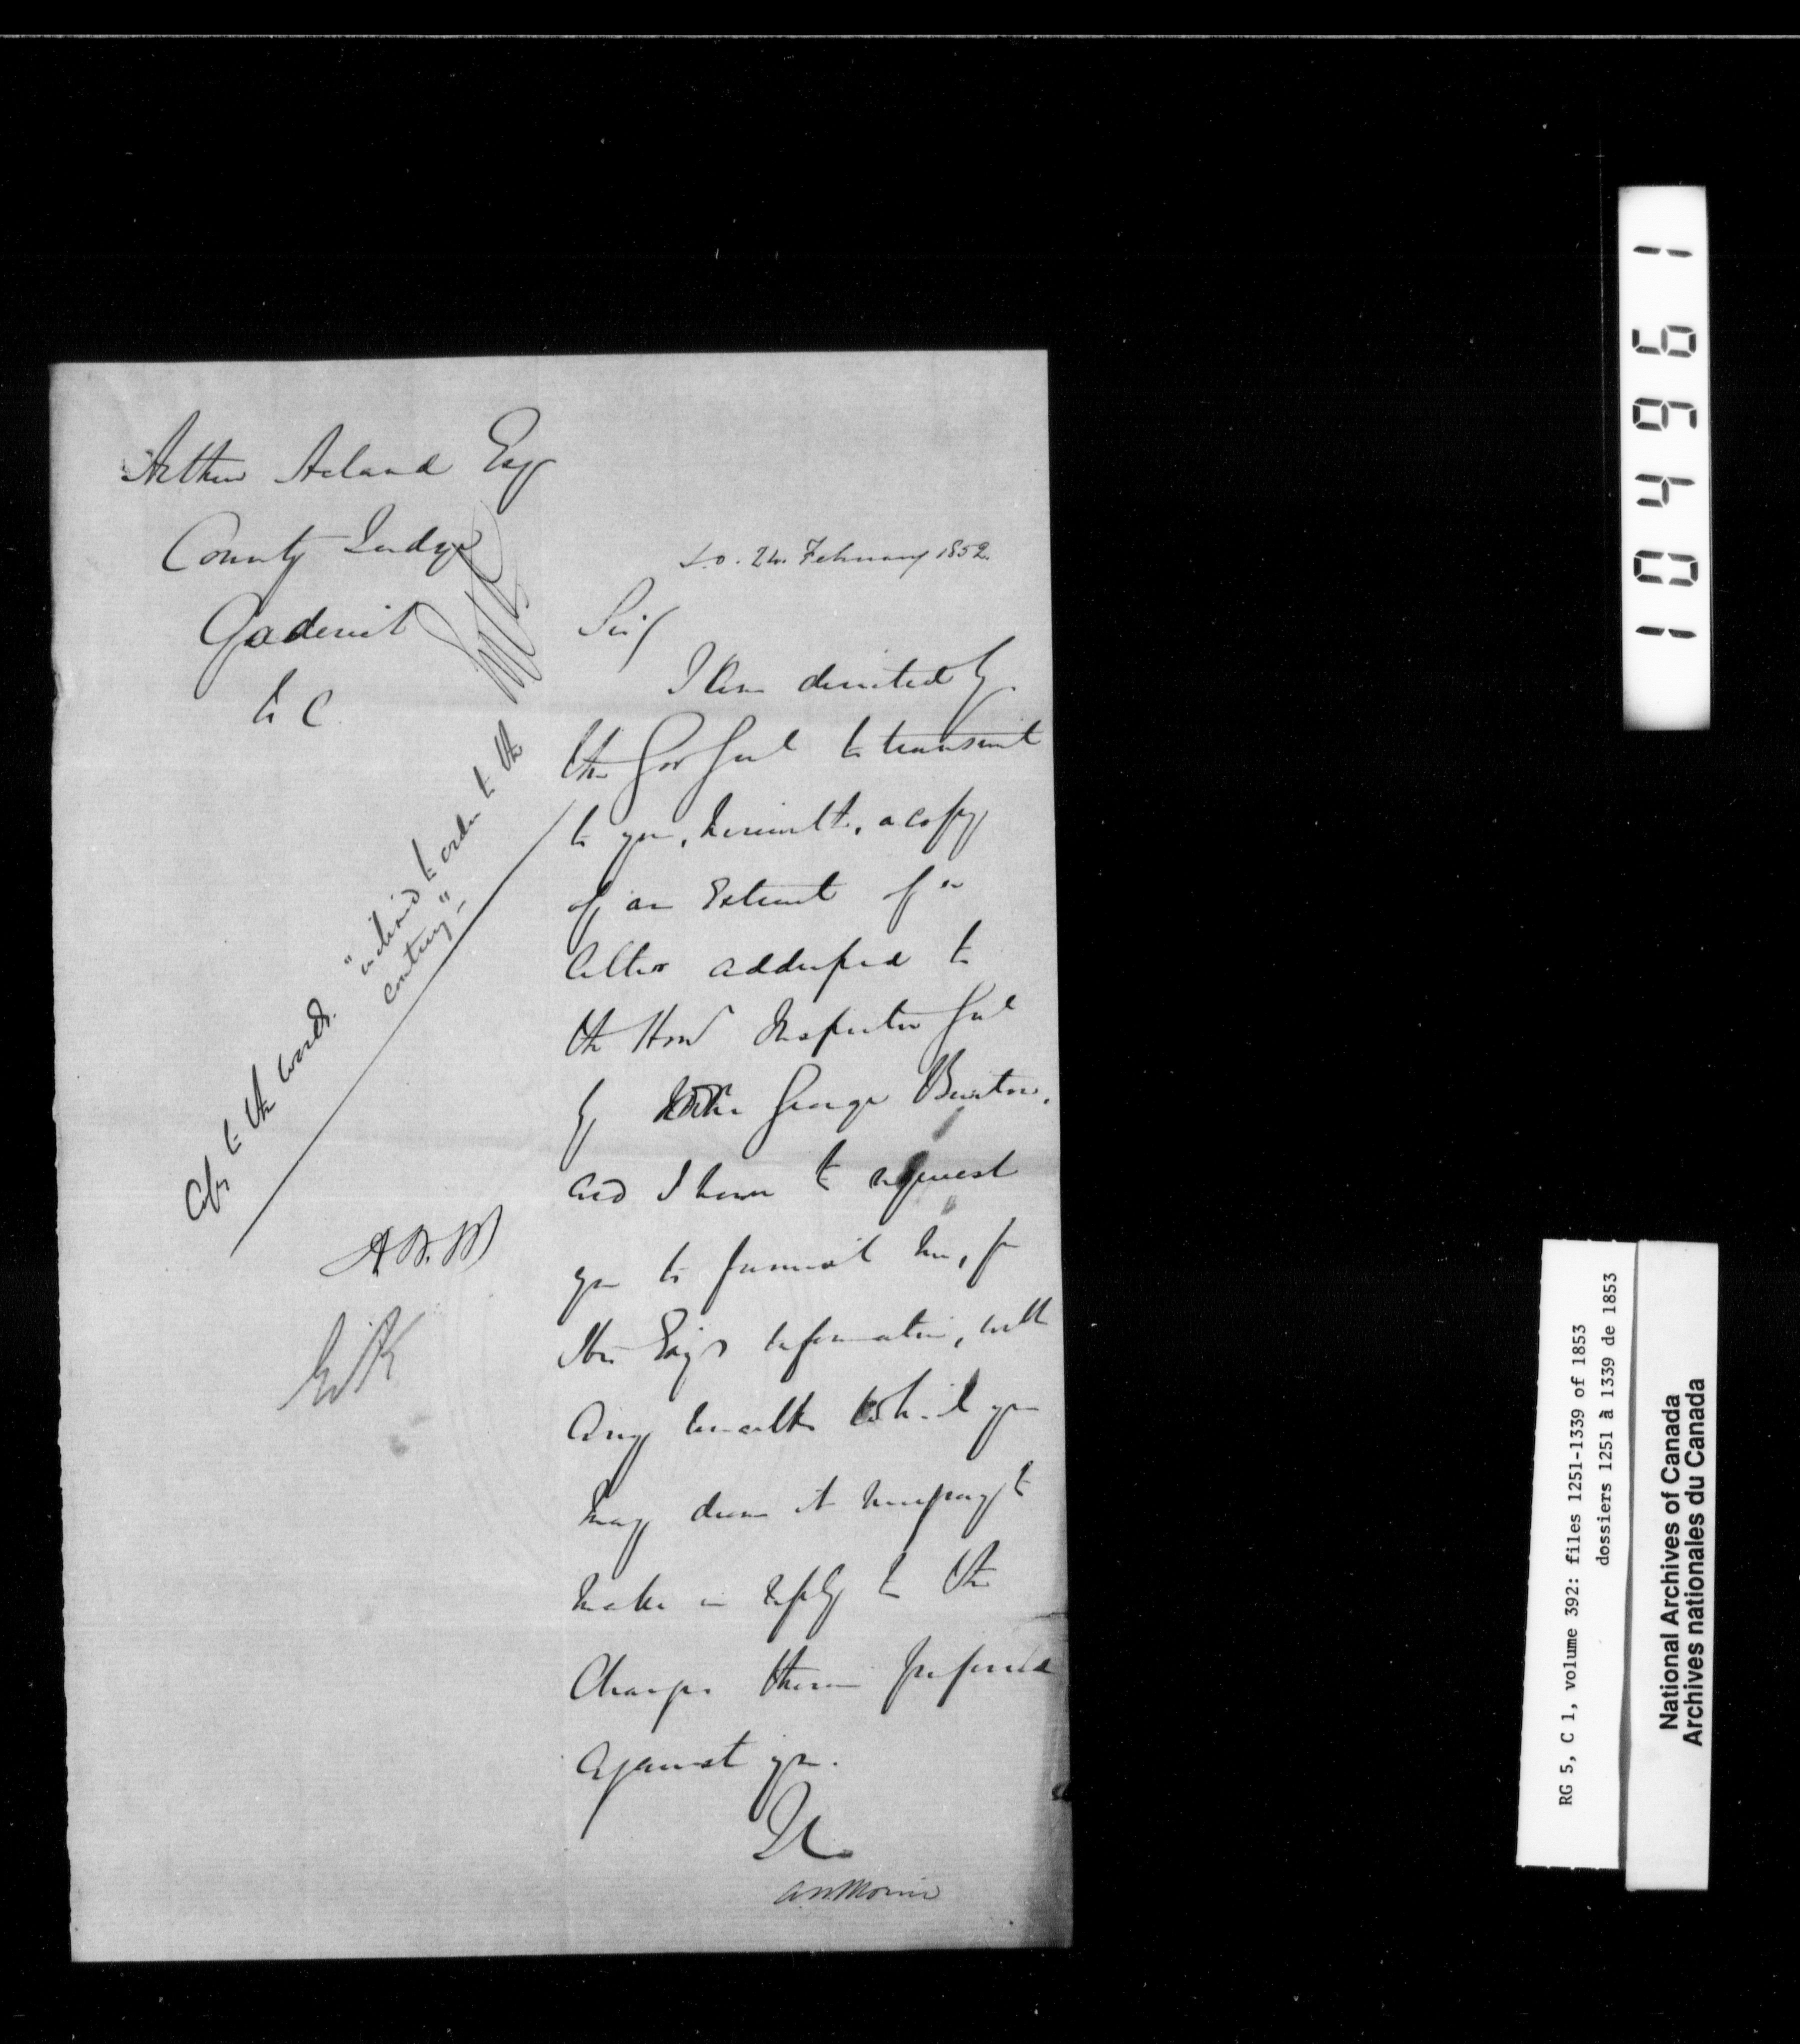 Arthur Acland Esqr
County Judge
Goderich
U C
S.O. 24 February 1852.
Sir/
I am directed by
the Gov Genl to transmit
to you, herewith, a copy
of an Extract of a
letter addressed to
the Honl Inspector Genl
by George Brunton,
and I have to request
you to furnish him, for
His Exys information, with
any remarks which you
may deem it necessary to
make in reply to the
Charges therein preferred
against you.
A.N. Morin
Copy to the words "advised to order to the
contrary"
A.N.M
1 0 4 9 6 1
RG 5, C 1, volume 392: files 1251-1339 of 1853
dossiers 1251 à 1339 de 1853
National Archives of Canada
Archives nationales du Canada